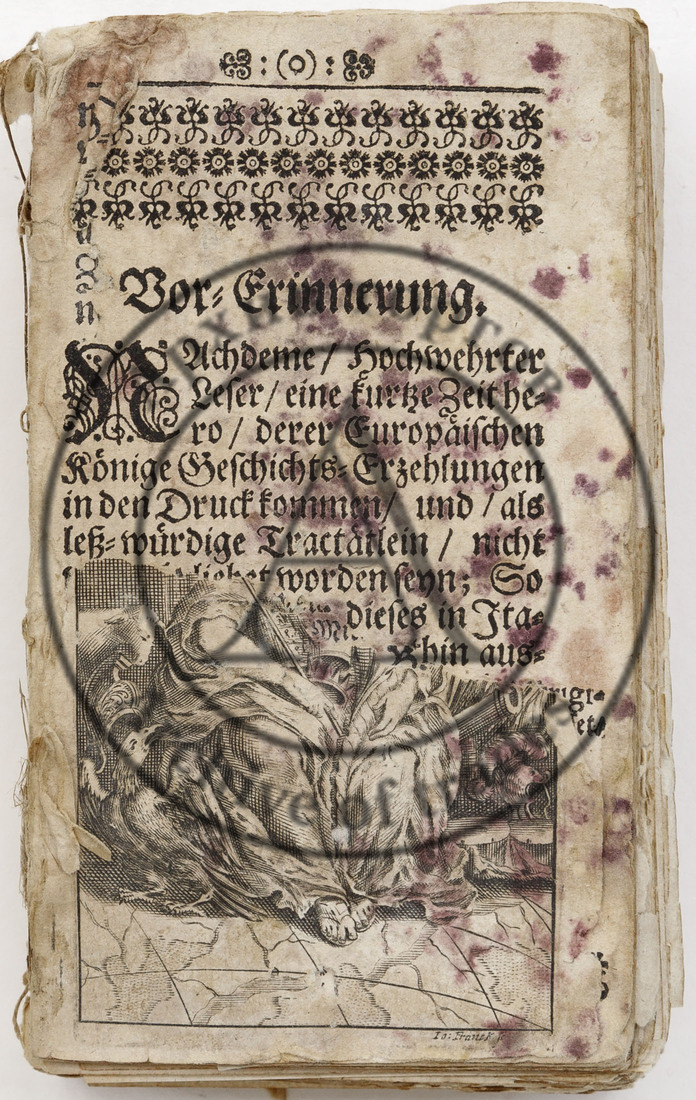 :(O):
Vor-Erinnerung.
NAchdeme / Hochwehrter
Leser / eine kurtze Zeit he-
ro / derer Europäischen
Könige Geschichts-Erzehlungen
in den Druck kommen / und / als
leß-würdige Tractätlein / nicht
worden seyn; So
dieses in Ita-
hin aus-
Io: Franck